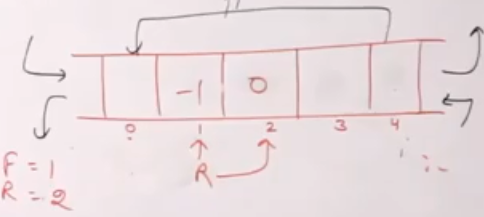 -1 0
0 1 2 3 4
R
F = 1
R = 2